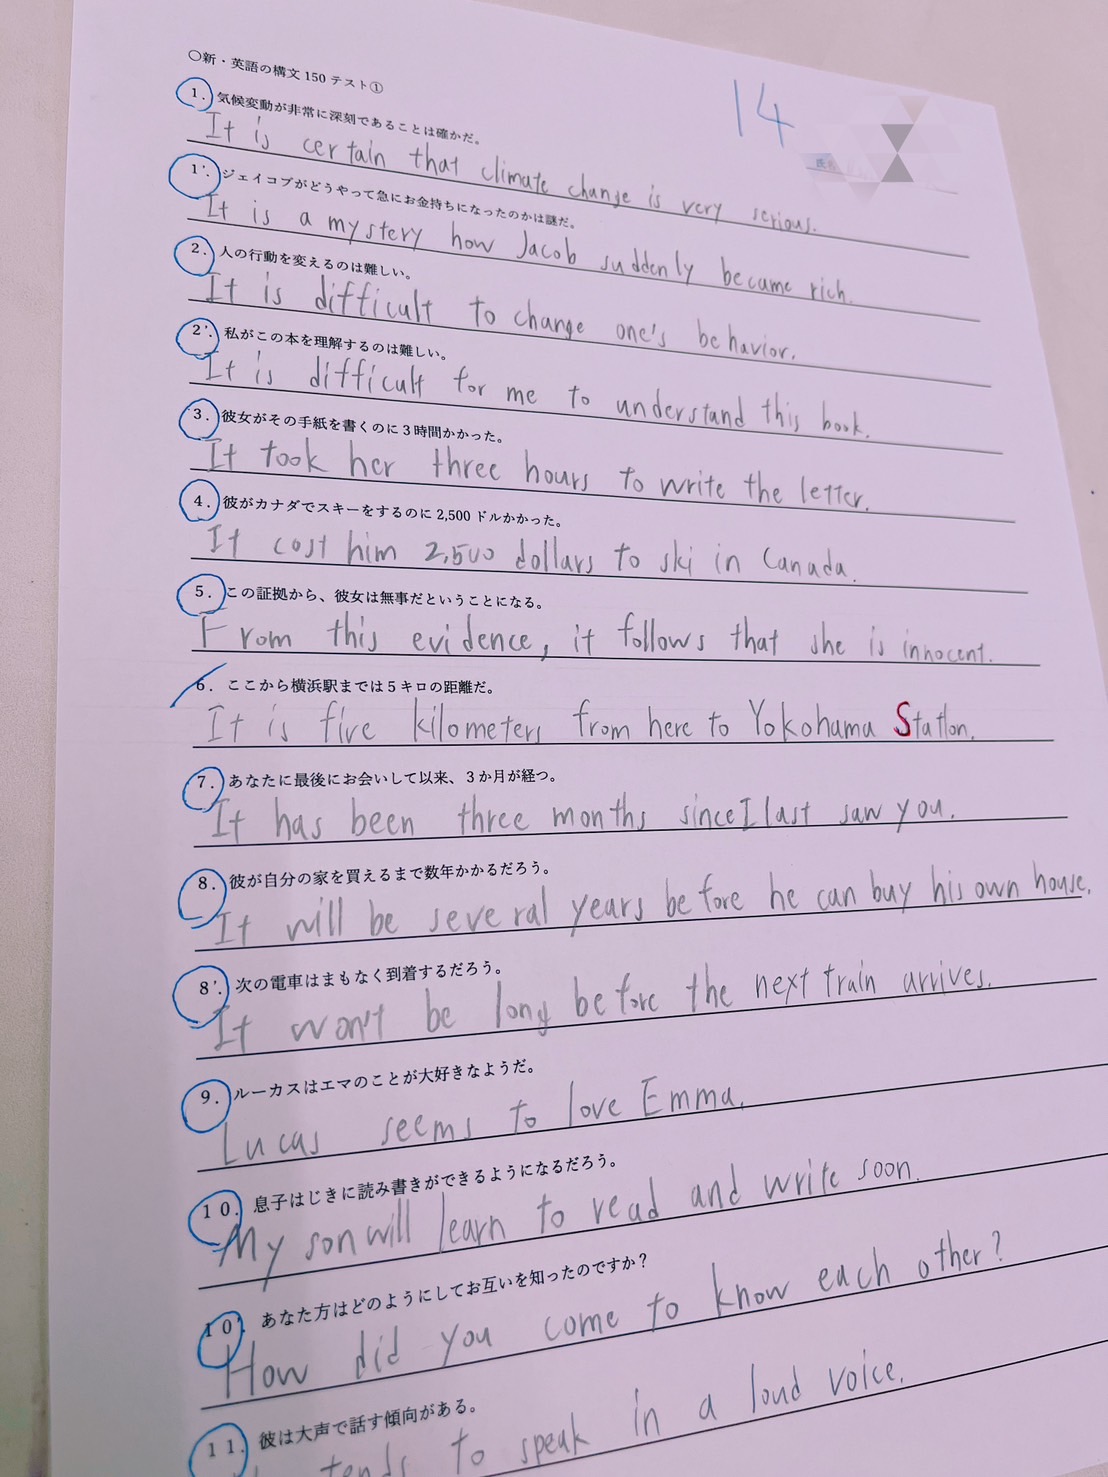 ○新・英語の構文150テスト①
14
1. 気候変動が非常に深刻であることは確かだ。
It is certain that climate change is very serious.
1'. ジェイコブがどうやって急にお金持ちになったのかは謎だ。
It is a mystery how Jacob suddenly became rich.
2. 人の行動を変えるのは難しい。
It is difficult to change one's behavior.
2'. 私がこの本を理解するのは難しい。
It is difficult for me to understand this book.
3. 彼女がその手紙を書くのに3時間かかった。
It took her three hours to write the letter.
4. 彼がカナダでスキーをするのに2,500ドルかかった。
It cost him 2,500 dollars to ski in Canada.
5. この証拠から、彼女は無事だということになる。
From this evidence, it follows that she is innocent.
6. ここから横浜駅までは5キロの距離だ。
It is five kilometers from here to Yokohama Station.
7. あなたに最後にお会いして以来、3か月が経つ。
It has been three months since I last saw you.
8. 彼が自分の家を買えるまで数年かかるだろう。
It will be several years before he can buy his own house.
8'. 次の電車はまもなく到着するだろう。
It won't be long before the next train arrives.
9. ルーカスはエマのことが大好きなようだ。
Lucas seems to love Emma.
10. 息子はじきに読み書きができるようになるだろう。
My son will learn to read and write soon.
10'. あなた方はどのようにしてお互いを知ったのですか？
How did you come to know each other?
11. 彼は大声で話す傾向がある。
tends to speak in a loud voice.